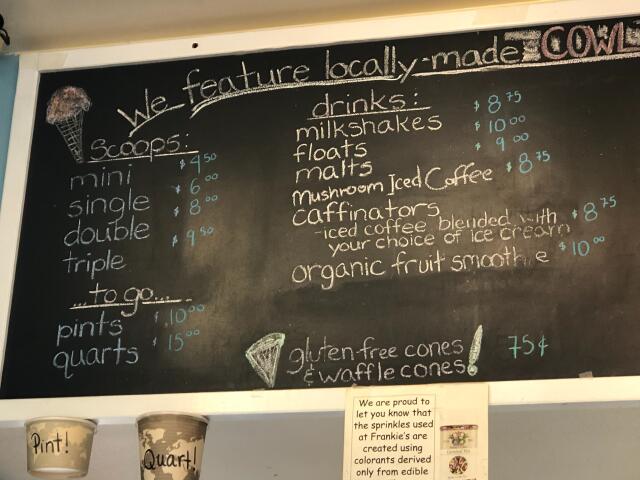 We feature locally-made COWL
Scoops:
mini $4.50
single $6.00
double $8.00
triple $9.50
...to go...
pints $10.00
quarts $15.00
drinks:
milkshakes $8.75
floats $10.00
malts $9.00
Mushroom Iced Coffee $8.75
caffinators $8.75
-iced coffee blended with
your choice of ice cream
organic fruit smoothie $10.00
gluten-free cones
& waffle cones! 75¢
Pint!
Quart!
We are proud to
let you know that
the sprinkles used
at Frankie's are
created using
colorants derived
only from edible